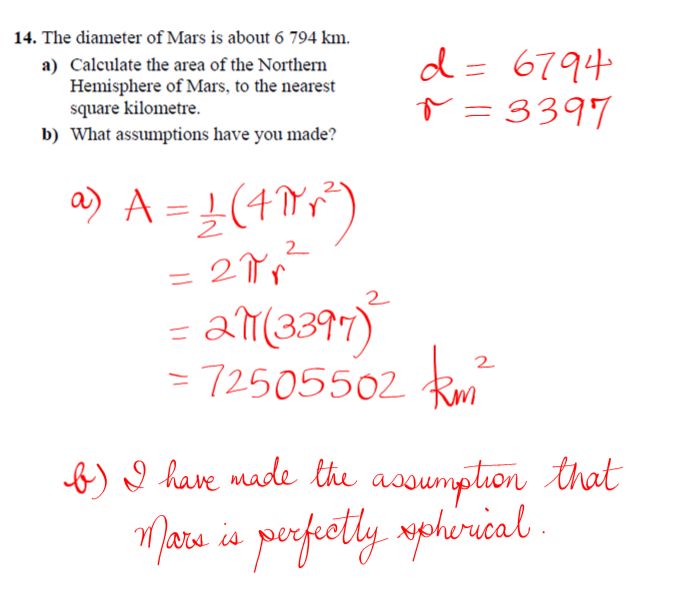 14. The diameter of Mars is about 6 794 km.
a) Calculate the area of the Northern
Hemisphere of Mars, to the nearest
square kilometre.
b) What assumptions have you made?
d = 6794
r = 3397
a) A = 1/2 (4πr²)
= 2πr²
= 2π(3397)²
= 72505502 km²
b) I have made the assumption that
Mars is perfectly spherical.